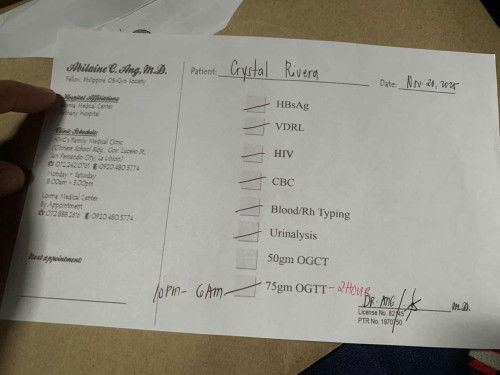 Abilaine C. Ang, M.D.
Fellow, Philippine OB-Gyn Society
Hospital Affiliations
Lorma Medical Center
Hospital
Clinic Schedule:
Family Medical Clinic
(Chinese School Bldg., Gov. Lucero St.
San Fernando City, La Union)
072.242.0761 0920.480.5774
Monday - Saturday
8:00am - 3:00pm
Lorma Medical Center
By Appointment
072.888.2616 0920.480.5774
Next appointment:
Patient: Crystal Rivera
Date: Nov. 20, 2025
HBsAg
VDRL
HIV
CBC
Blood/Rh Typing
Urinalysis
50gm OGCT
10PM - 6AM 75gm OGTT - 2 HOUR
DR. ANG M.D.
License No. 82145
PTR No. 1970150